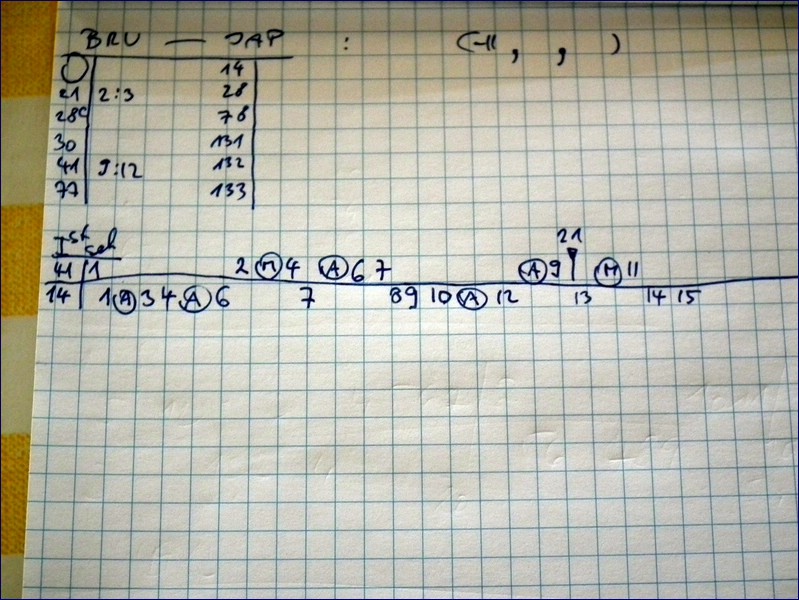 BRU — JAP : (-11 , , )
◯ 14
21 2:3 28
28c 78
30 131
41 9:12 132
77 133
Ist set
21
41 1 2 (M) 4 (A) 6 7 (A) 9 (M) 11
14 1 (A) 3 4 (A) 6 7 8 9 10 (A) 12 13 14 15